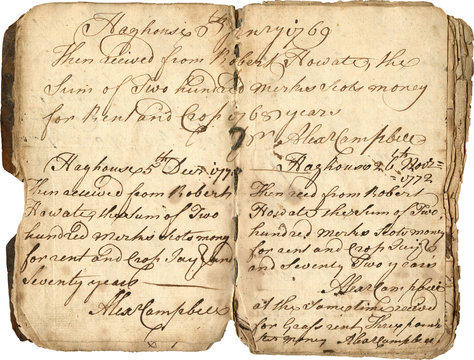 Haghouse 8th 1769
Then reeived from Robert Howatt, the
Sum of Two hundred Merks Scots money
for Rent and Crop 1768 years
Alexr Campbell
Haghouse 5th Decr 177
Then received from Robert
Howatt, the Sum of Two
hundred Merks Scots money
for rent and Crop Jaiy
Seventy years
Alexr Campbell
Haghouse 26th Novr
1772
Then reed from Robert
Howatt the Sum of Two
hundred Merks Scots money
for rent and Crop Jaiy
and Seventy Two years
Alexr Campbell
at the Same time received
for Grass rent Three
Scots money Alexr Campbell